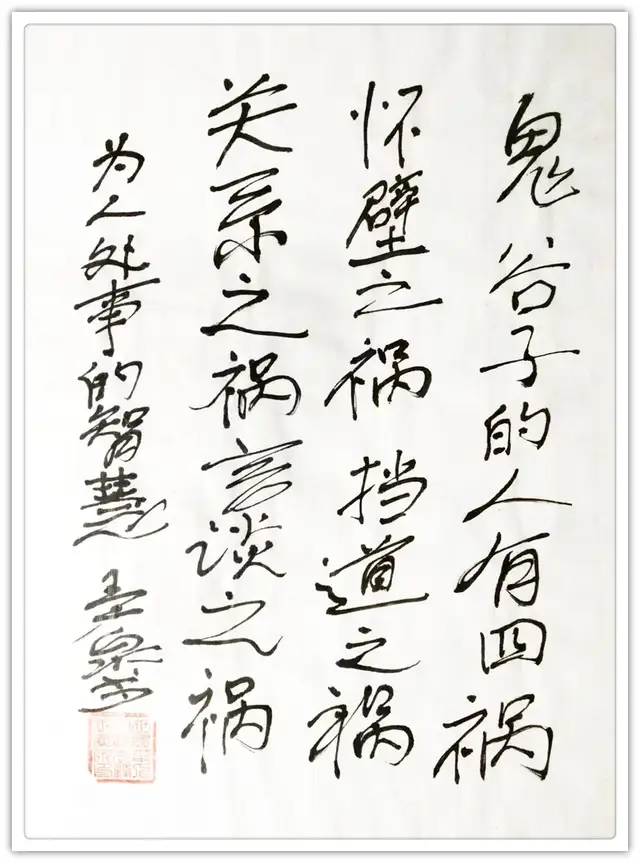 鬼谷子的人有四祸
怀壁之祸 挡道之祸
关系之祸言谈之祸
为人处事的智慧 王